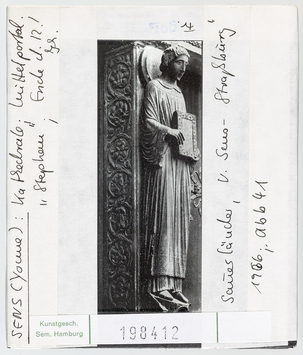 SENS (Yonne): Kathedrale; Mittelportal.
"Stephan"; Ende d. 12. Jh.
Sauerländer, V. Sens – Straßburg
1966; Abb 41
Kunstgesch.
Sem. Hamburg
198412